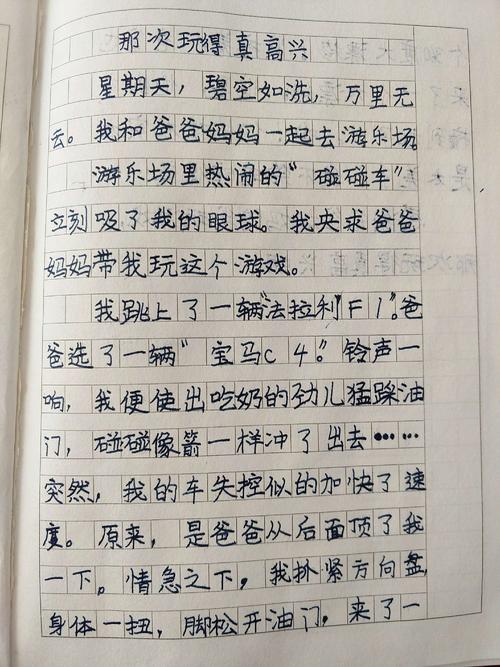 那次玩得真高兴
星期天，碧空如洗，万里无
云。我和爸爸妈妈一起去游乐场。
游乐场里热闹的“碰碰车”
立刻吸了我的眼球。我央求爸爸
妈妈带我玩这个游戏。
我跳上了一辆“法拉利F1”。爸
爸选了一辆“宝马c4”。铃声一
响，我便使出吃奶的劲儿猛踩油
门，碰碰像箭一样冲了出去……
突然，我的车失控似的加快了速
度。原来，是爸爸从后面顶了我
一下。情急之下，我扒紧方向盘，
身体一扭，脚松开油门，来了一